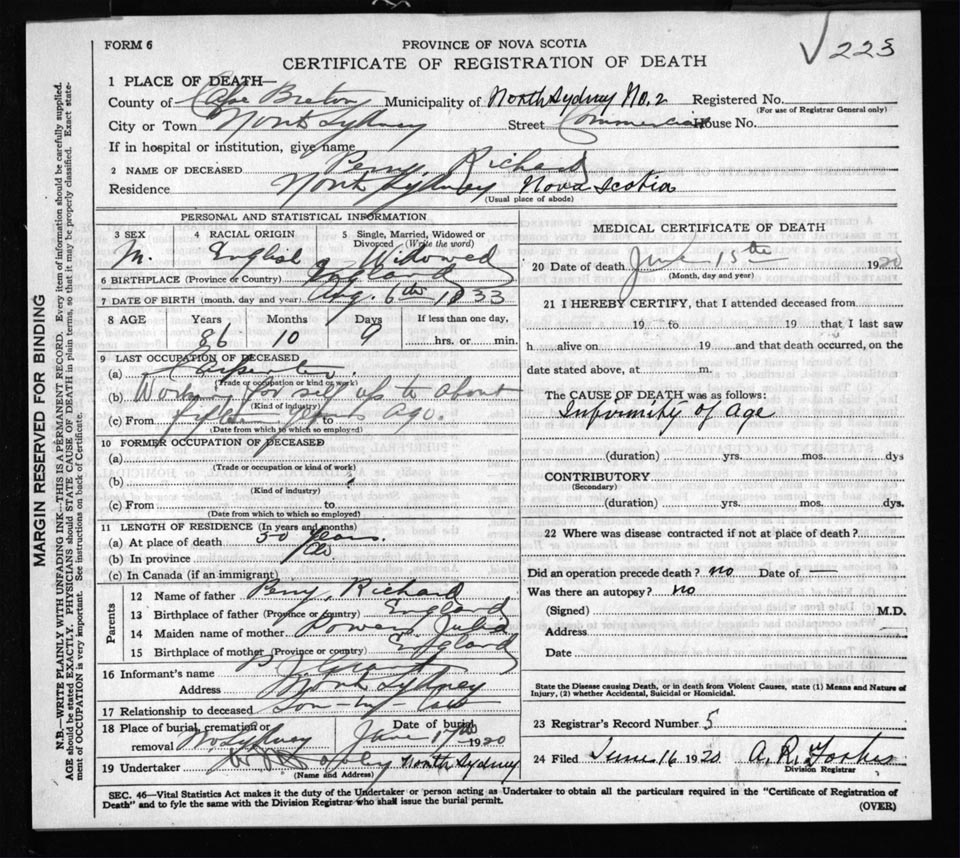 FORM 6
PROVINCE OF NOVA SCOTIA
√ 223
CERTIFICATE OF REGISTRATION OF DEATH
1 PLACE OF DEATH—
County of Cape Breton Municipality of North Sydney No. 2 Registered No.
(For use of Registrar General only)
City or Town North Sydney Street Commercial House No.
If in hospital or institution, give name
2 NAME OF DECEASED Perry, Richard
Residence North Sydney Nova Scotia
(Usual place of abode)
PERSONAL AND STATISTICAL INFORMATION
3 SEX 4 RACIAL ORIGIN 5 Single, Married, Widowed or Divorced (Write the word)
M. English Widowed
6 BIRTHPLACE (Province or Country) England
7 DATE OF BIRTH (month, day and year) Aug. 6th 1833
8 AGE Years Months Days If less than one day,
86 10 9 hrs. or min.
9 LAST OCCUPATION OF DECEASED
(a) Carpenter.
(Trade or occupation or kind of work)
(b) Working for self up to about
(Kind of industry)
(c) From fifteen years ago. to
(Date from which to which so employed)
10 FORMER OCCUPATION OF DECEASED
(a)
(Trade or occupation or kind of work)
(b)
(Kind of industry)
(c) From to
(Date from which to which so employed)
11 LENGTH OF RESIDENCE (In years and months)
(a) At place of death 50 years.
(b) In province do
(c) In Canada (if an immigrant)
Parents
12 Name of father Perry, Richard
13 Birthplace of father (Province or country) England
14 Maiden name of mother Julia
15 Birthplace of mother (Province or country) England
16 Informant's name Grant
Address North Sydney
17 Relationship to deceased Son-in-law
18 Place of burial, cremation or removal N. Sydney Date of burial June 17th 1920
19 Undertaker North Sydney
(Name and Address)
MEDICAL CERTIFICATE OF DEATH
20 Date of death June 15th 1920
(Month, day and year)
21 I HEREBY CERTIFY, that I attended deceased from
19 to 19 that I last saw
h alive on 19 and that death occurred, on the
date stated above, at m.
The CAUSE OF DEATH was as follows:
Infirmity of Age
(duration) yrs. mos. dys
CONTRIBUTORY
(Secondary)
(duration) yrs. mos. dys.
22 Where was disease contracted if not at place of death?
Did an operation precede death? no Date of —
Was there an autopsy? no
(Signed) M.D.
Address
Date
State the Disease causing Death, or in death from Violent Causes, state (1) Means and Nature of
Injury, (2) whether Accidental, Suicidal or Homicidal.
23 Registrar's Record Number 5
24 Filed June 16 1920 A. R. Forbes
Division Registrar
SEC. 46—Vital Statistics Act makes it the duty of the Undertaker or person acting as Undertaker to obtain all the particulars required in the "Certificate of Registration of
Death" and to fyle the same with the Division Registrar who shall issue the burial permit.
(OVER)
MARGIN RESERVED FOR BINDING
N.B.—WRITE PLAINLY WITH UNFADING INK—THIS IS A PERMANENT RECORD. Every item of information should be carefully supplied.
AGE should be stated EXACTLY. PHYSICIANS should STATE CAUSE OF DEATH in plain terms, so that it may be properly classified. Exact state-
ment of OCCUPATION is very important. See instructions on back of Certificate.